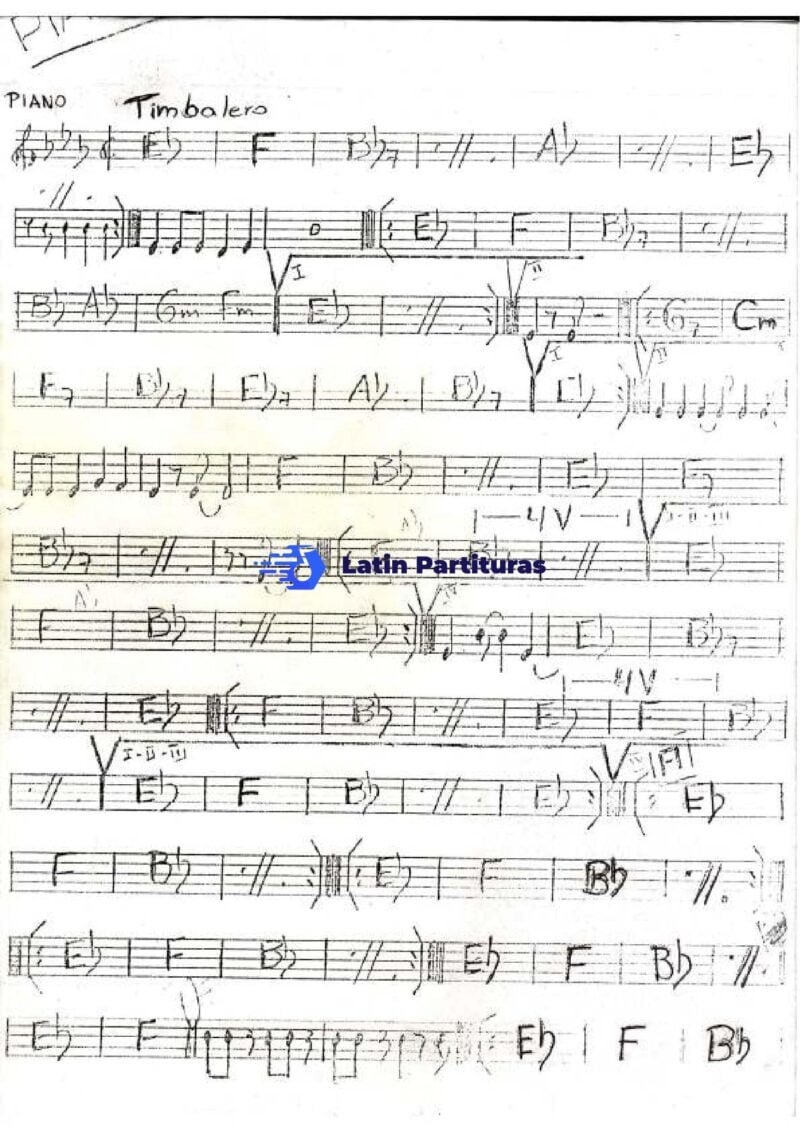 PIANO Timbalero
Eb F Bb7 Ab Eb
Eb F Bb7
I II
Bb Ab Gm Fm Eb G7 Cm
I II
F7 Bb7 Eb7 Ab Bb7 Eb
F Bb Eb F7
4V I-II-III
Bb7 Bb Eb
Latin Partituras
Ab IV
F Bb Eb Eb Bb7
4V
Eb F Bb Eb F Bb
I-II-III IV A
Eb F Bb Eb Eb
F Bb Eb F Bb
Eb F Bb Eb F Bb
Eb F Eb F Bb